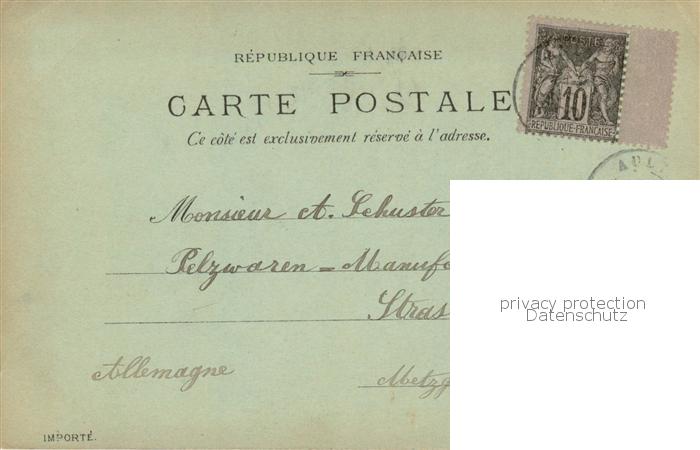 RÉPUBLIQUE FRANÇAISE
CARTE POSTALE
Ce côté est exclusivement réservé à l'adresse.
POSTE
10
REPUBLIQUE FRANÇAISE
AUL
Monsieur A. Schuster
Pelzwaren - Manufa
Stras
Allemagne
Metzg
IMPORTÉ.
privacy protection
Datenschutz